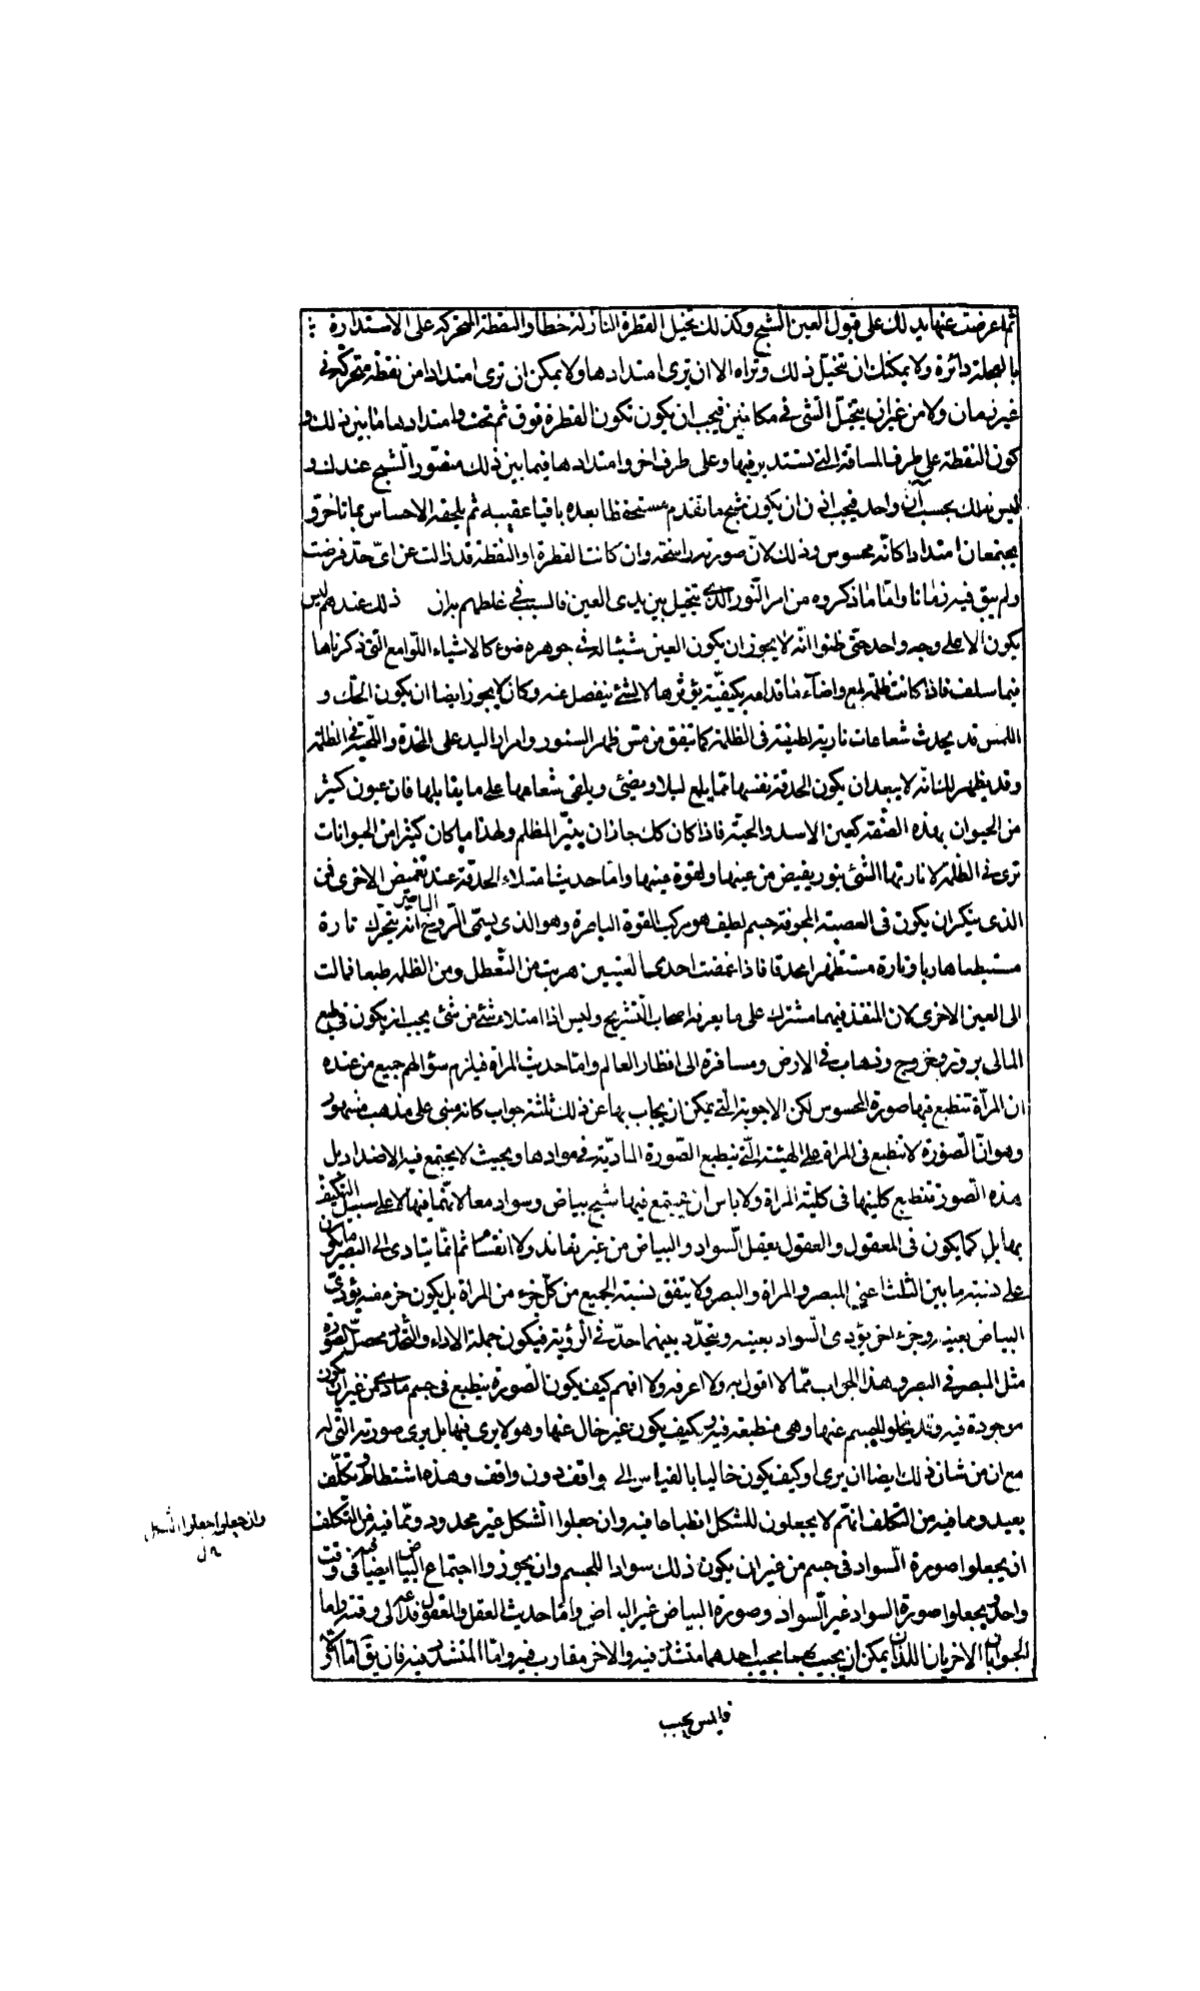 ثم اعرضت عنها يدلك على قبول العين الشبح وكذلك تخيل القطرة النازلة خطا والنقطة المتحركة على الاستدارة
بالعجلة دائرة ولا يمكنك ان تتخيل ذلك وتراه الا ان ترى امتدادها ولا يمكن ان ترى امتدادا من نقطة متحركة في
غير زمان ولا من غير ان يتخيل الشئ في مكانين فيجب ان يكون تكون القطرة فوق ثم تحت وامتدادها ما بين ذلك و
كون النقطة على طرف المسافة التى تستدير فيها وعلى طرف اخر وامتدادها فيما بين ذلك متصور الشبح عندك و
ليس ذلك بحسب آن واحد فيجب اذن ان يكون شبح ما تقدم مستحفظا بعده باقيا عقيبه ثم يلحقه الاحساس بما تاخر و
يجتمعان امتدادا كانه محسوس وذلك لان صورته راسخة وان كانت القطرة او النقطة قد زالت عن اى حد فرضت
ولم يبق فيه زمانا واما ما ذكروه من امر النور الذى يتخيل بين يدى العين فالسبب فى غلطهم به ان ذلك عندهم ليس
يكون الا على وجه واحد حتى ظنوا انه لا يجوز ان يكون العين شيئا له فى جوهره ضوء كالاشياء اللوامع التى ذكرناها
فيما سلف فاذا كانت ظلمة لمع واضاء ما قدامه بكيفية يؤثرها لا بشئ ينفصل عنه وكان لا يجوز ايضا ان يكون الحك و
اللمس قد يحدث شعاعات نارية لطيفة فى الظلمة كما يتفق من مس ظهر السنور وامرار اليد على المخدة واللحية فى الظلمة
وقد يظهر لك انه لا يبعد ان يكون الحدقة نفسها مما يلمع ليلا ويضئ ويلقى شعاعها على ما يقابلها فان عيون كثير
من الحيوان بهذه الصفة كعين الاسد والحية فاذا كان كك جاز ان ينير المظلم ولهذا ما كان كثير من الحيوانات
ترى فى الظلمة لانارتها الشئ بنور يفيض من عينها ولقوة عينها واما حديث امتلاء الحدقة عند تغميض الاخرى فمن
الذى ينكر ان يكون فى العصبة المجوفة جسم لطيف هو مركب القوة الباصرة وهو الذى يسمى الروح الباصر انه يتحرك تارة
مستبطنا هاربا وتارة مستظهرا محدقا فاذا غمضت احدى العينين هربت من التعطل ومن الظلمة طبعا فمالت
الى العين الاخرى لان المنفذ فيهما مشترك على ما يعرفه اصحاب التشريح وليس اذا امتلاء شئ من شئ يجب ان يكون فى طبع
المالى بروز وخروج وذهاب فى الارض ومسافرة الى اقطار العالم واما حديث المراة فيلزم سؤالهم جميع من عنده
ان المرآة تنطبع فيها صورة المحسوس لكن الاجوبة التى يمكن ان يجاب بها عن ذلك ثلثة جواب كانه مبنى على مذهب مشهور
وهو ان الصورة لا تنطبع فى المراة على الهيئة التى ينطبع الصورة المادية فى موادها وبحيث لا يجتمع فيه الاضداد بل
هذه الصور تنطبع كليتها فى كلية المراة ولا باس ان يجتمع فيها شبح بياض وسواد معا لانهما فيها لا على سبيل التكيف
بهما بل كما يكون فى المعقول والعقول يعقل السواد والبياض من غير تعاند ولا انقسام ثم انما يتادى الى البصر ما يكون
على نسبة ما بين الثلث اعنى المبصر والمراة والبصر ولا يتفق نسبة الجميع من كل جزء من المراة بل يكون جزء منه يؤدى
البياض بعينه وجزء اخر يؤدى السواد بعينه ويتحدد بينهما حد فى الرؤية فيكون جملة الاداء والتحدد محصل الصورة
مثل المبصر فى البصر وهذا الجواب مما لا اقول به ولا اعرفه ولا افهم كيف يكون الصورة ينطبع فى جسم مادى من غير ان يكون
موجودة فيه وقد يخلو الجسم عنها وهى منطبعة فيه بل كيف يكون غير خال عنها وهو لا يرى فيها بل يرى صورته التى له
مع ان من شان ذلك ايضا ان يرى او كيف يكون خاليا بالقياس الى واقف دون واقف وهذه اشتطاط وتكلف
بعيد ومما فيه من التكلف انهم لا يجعلون للشكل انطباعا فيه وان جعلوا الشكل غير محدود ومما فيه من التكلف
ان يجعلوا صورة السواد فى جسم من غير ان يكون ذلك سوادا للجسم وان يجوزوا اجتماع البياض ايضا فيه فى وقت
واحد ويجعلوا صورة السواد غير السواد وصورة البياض غير البياض واما حديث العقل والمعقول فدعه الى وقته واما
الجوابان الاخريان اللذان يمكن ان يجيب بهما مجيب احدهما متشدد فيه والاخر مقارب فيه واما المتشدد فيه فان يق اما اكثر
وان جعلوا جعلوا الشكل
ل
فليس يجب